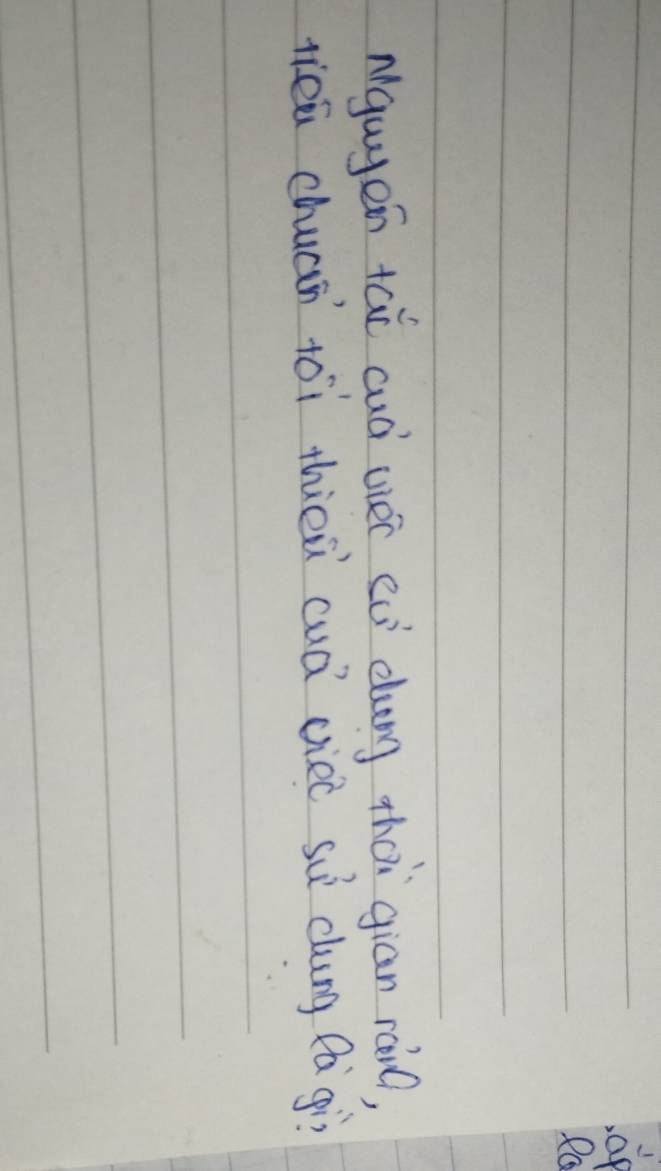 Nguyên tắc của việc sử dụng thời gian rảnh,
tiêu chuẩn tối thiểu của việc sử dụng là gì?